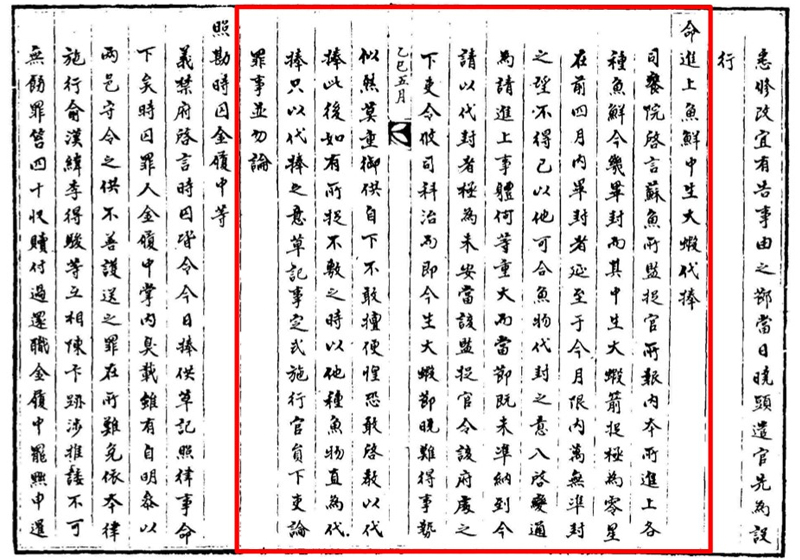 惠修改宜有告事由之節當日曉頭遣官先為設
行
命進上魚鮮中生大蝦代捧
司饔院啓言蘇魚所監捉官所報內本所進上各
種魚鮮今幾畢封而其中生大蝦箭捉極為零星
在前四月內畢封者延至于今月限內萬無準封
之望不得已以他可合魚物代封之意入啓變通
為請進上事體何等重大而當節既未準納到今
請以代封者極為未安當該監捉官令該府處之
下吏令攸司科治而即今生大蝦節晚難得事勢
乙巳五月
似然莫重御供自下不敢擅便惶恐敢啓教以代
捧此後如有所捉不敷之時以他種魚物直為代
捧只以代捧之意草記事定式施行官員下吏論
罪事並勿論
照勘時囚金履中等
義禁府啓言時囚皆令今日捧供草記照律事命
下矣時囚罪人金履中掌內臭載雖有自明參以
兩邑守令之供不善護送之罪在所難免依本律
施行俞漢緯李得駿等互相陳卞跡涉推諉不可
無飭罪笞四十収贖付過還職金履中罷黜中還